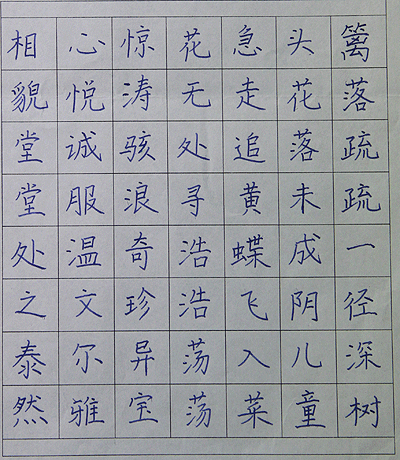 篱落疏疏一径深树
头花落未成阴儿童
急走追黄蝶飞入菜
花无处寻浩浩荡荡
惊涛骇浪奇珍异宝
心悦诚服温文尔雅
相貌堂堂处之泰然